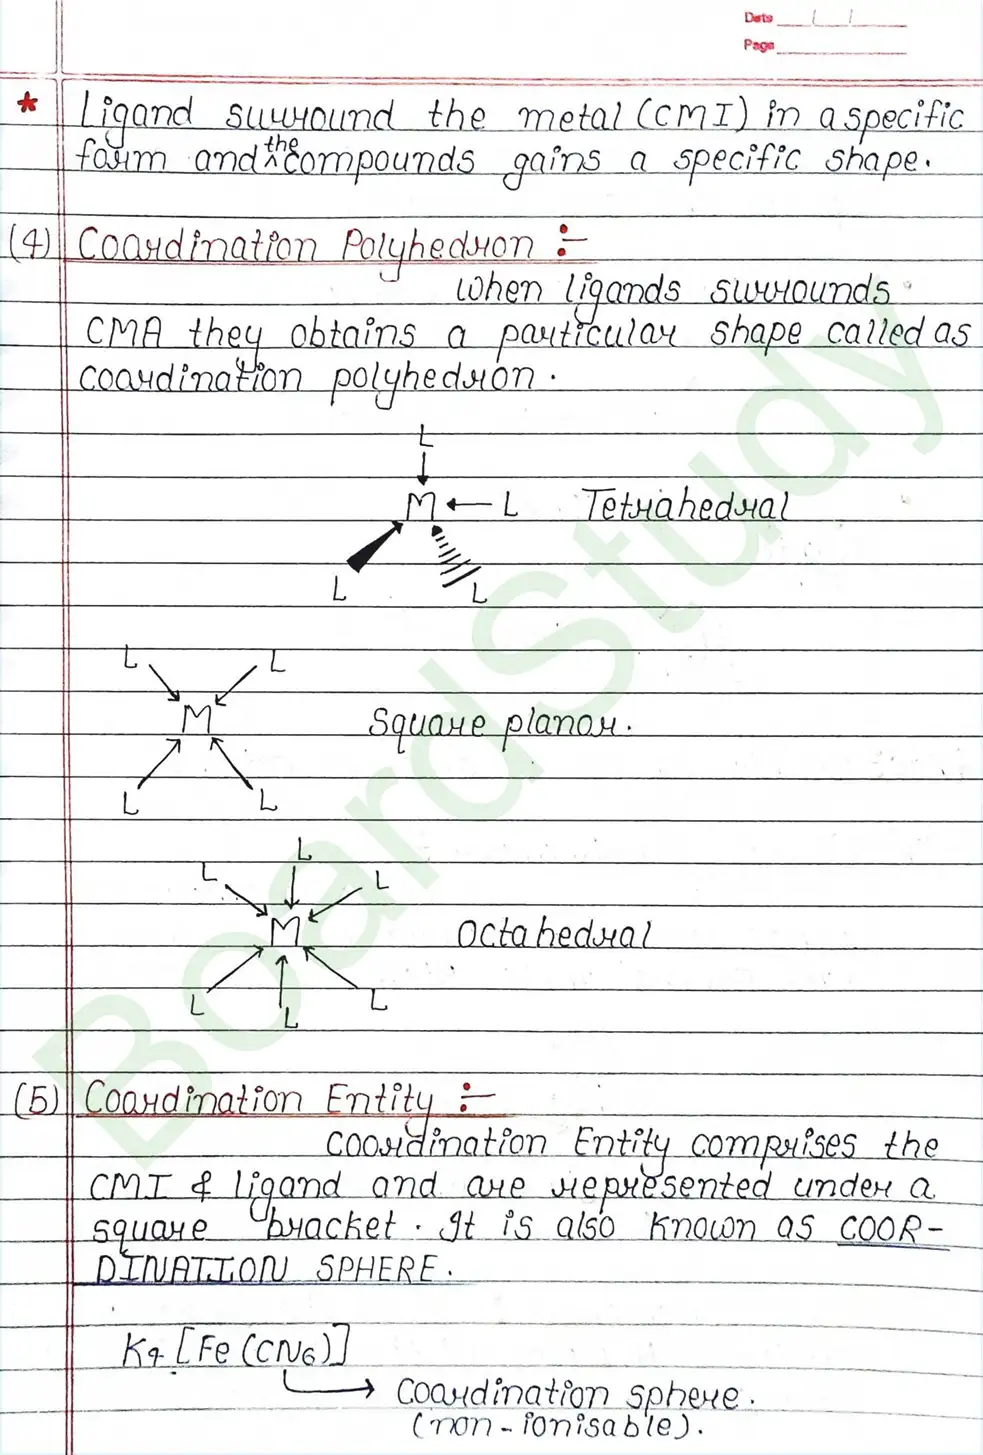 Date
Page
* Ligand surround the metal (CMI) in a specific
form and the compounds gains a specific shape.
(4) Coordination Polyhedron :-
When ligands surrounds
CMA they obtains a particular shape called as
coordination polyhedron.
L
M ← L Tetrahedral
L L
L L
M Square planar.
L L
L
L L
M Octahedral
L L
L
(5) Coordination Entity :-
Coordination Entity comprises the
CMI & ligand and are represented under a
square bracket. It is also known as COOR-
DINATION SPHERE.
K4 [Fe (CN6)]
→ Coordination sphere.
(non-ionisable).
BoardStudy